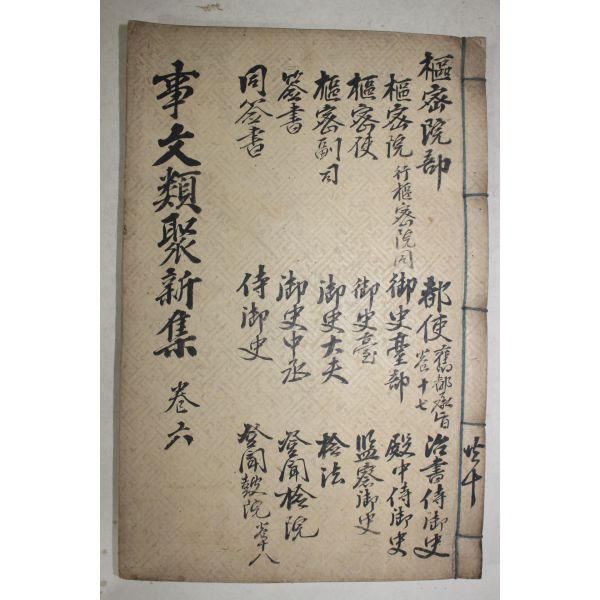 樞密院部
樞密院 行樞密院同
樞密使
樞密副司
簽書
同簽書
都使 舊都承旨 卷十七
御史臺部
御史臺
御史大夫
御史中丞
侍御史
治書侍御史
殿中侍御史
监察御史
检法
登聞检院
登聞鼓院 卷十八
事文類聚新集 卷六
共十